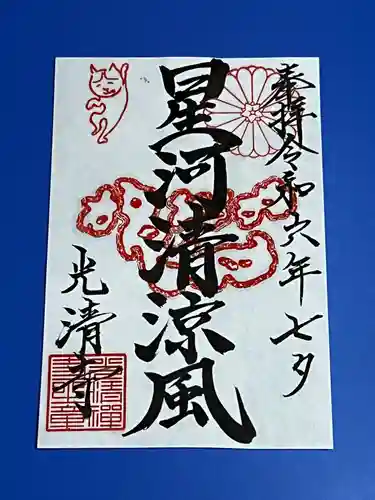 奉拝令和六年七夕
星河清涼風
光清寺